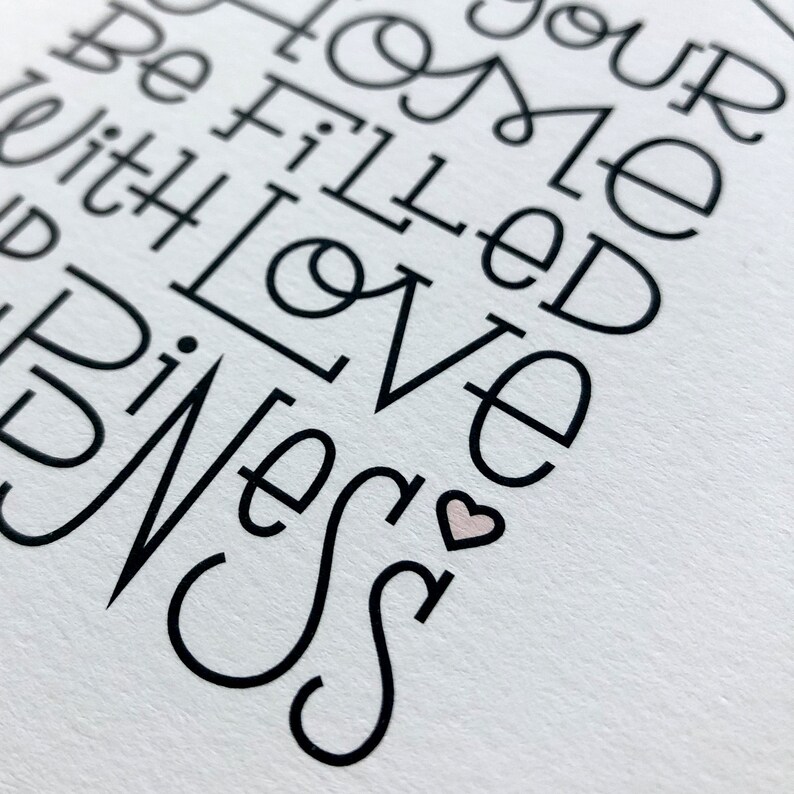 youR
HOMe
Be FiLLeD
WitH LOVe
ND
PPiNeSS